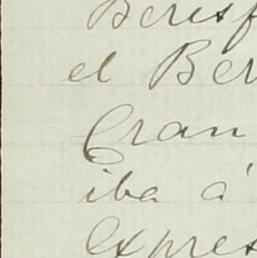 Beresf
el Ber
Gran
iba á
expres